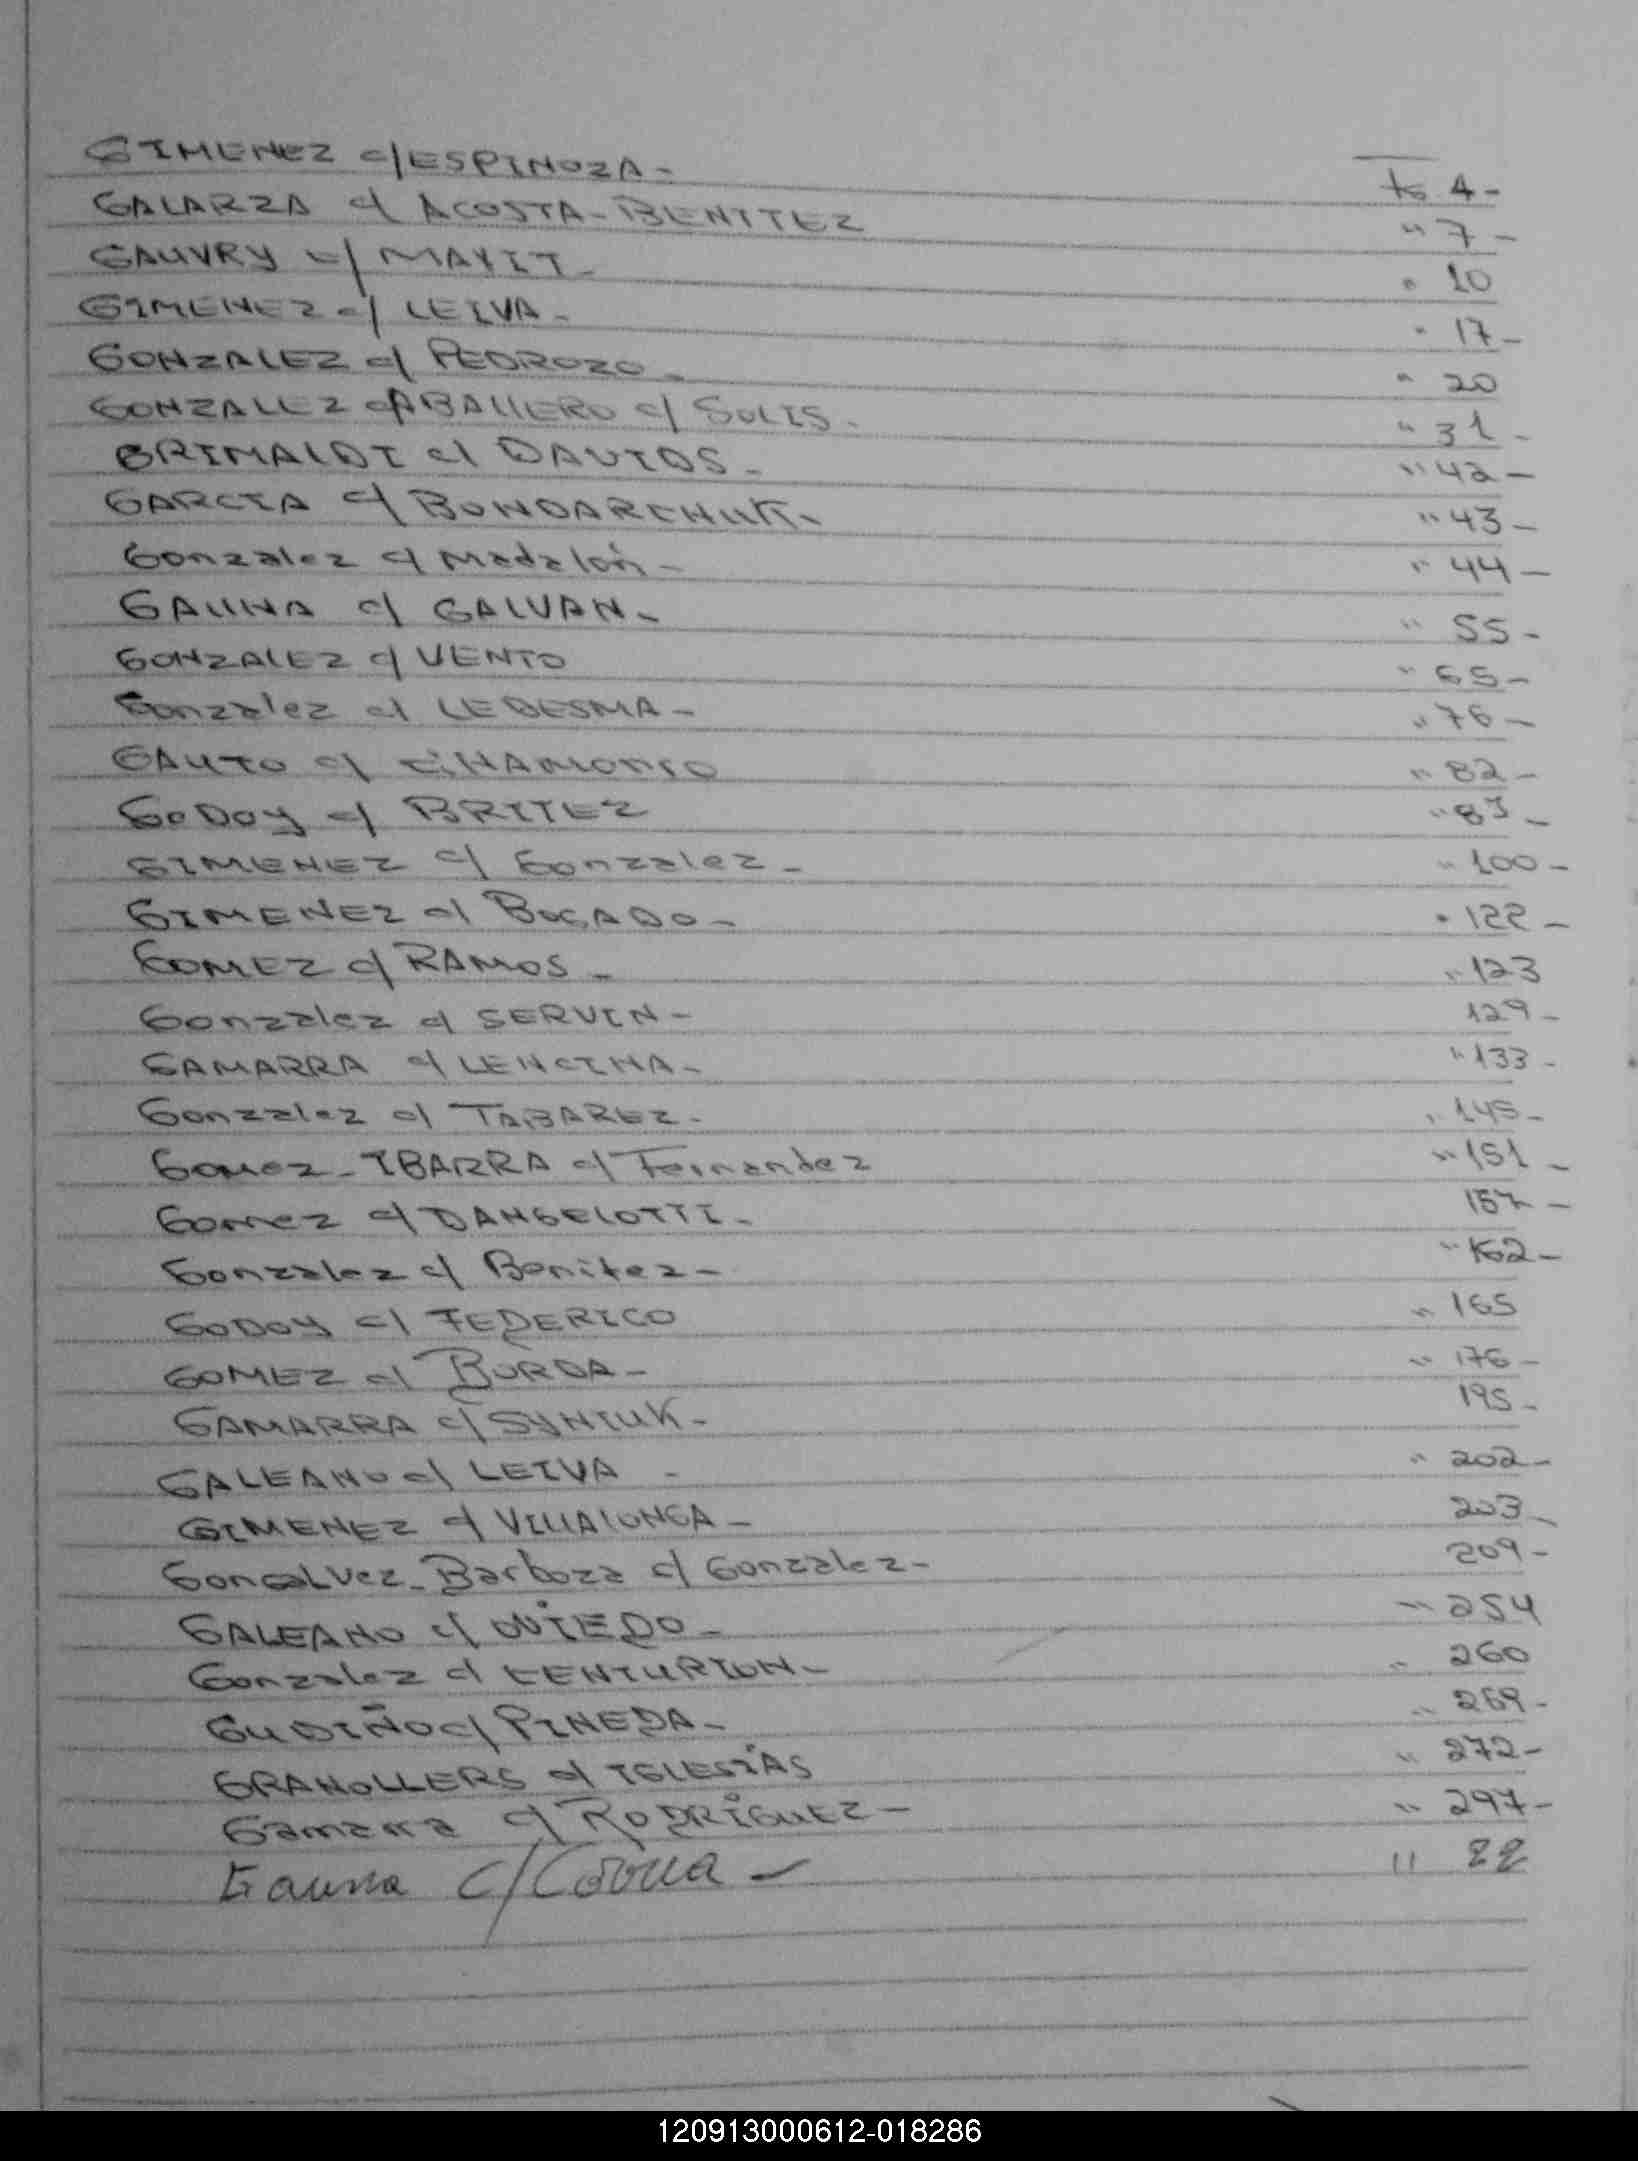 GIMENEZ c/ ESPINOZA - Fs 4 -
GALARZA c/ ACOSTA - BENITEZ " 7 -
GAUVRY c/ MAYIT - " 10
GIMENEZ c/ LEIVA - " 17 -
GONZALEZ c/ PEDROZO - " 20
GONZALEZ CABALLERO c/ SOLIS - " 31 -
GRIMALDI c/ DAVIOS - " 42 -
GARCIA c/ BONDARCHUK - " 43 -
Gonzalez c/ Madalón - " 44 -
GAUNA c/ GALVAN - " 55 -
GONZALEZ c/ VENTO " 65 -
Gonzalez c/ LEDESMA - " 76 -
GAUTO c/ " 82 -
GODOY c/ BRITEZ "
GIMENEZ c/ Gonzalez - " 100 -
GIMENEZ c/ BOGADO - " 122 -
GOMEZ c/ RAMOS - " 123
Gonzalez c/ SERVIN - 129 -
GAMARRA c/ LENCINA - " 133 -
Gonzalez c/ TABAREZ - " 145 -
Gomez - IBARRA c/ Fernandez " 151 -
Gomez c/ DANGELOTTI - 157 -
Gonzalez c/ Benitez - " 162 -
GODOY c/ FEDERICO " 165
GOMEZ c/ BORDA - " 176 -
GAMARRA c/ SYNIUK - 195 -
GALEANO c/ LEIVA - " 202 -
GIMENEZ c/ VILLALONGA - 203 -
Goncalvez - Barboza c/ Gonzalez - 209 -
GALEANO c/ OVIEDO - " 254
Gonzalez c/ CENTURION - " 260
GUDIÑO c/ PINEDA - " 269 -
GRANOLLERS c/ IGLESIAS " 272 -
Gamarra c/ RODRIGUEZ - " 297 -
Gauna c/ - " 22
120913000612-018286